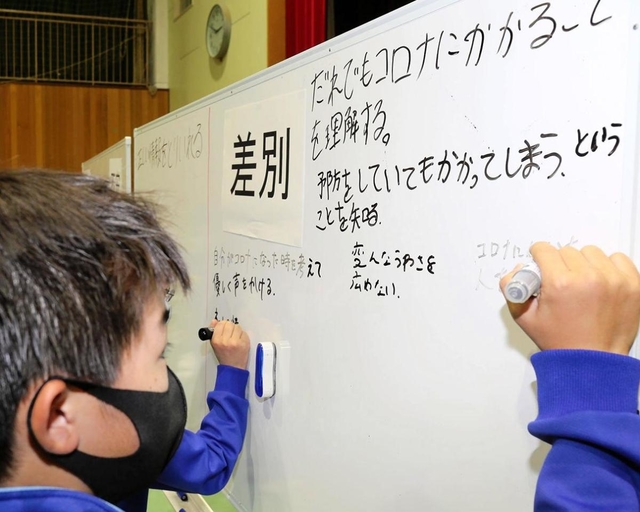 だれでもコロナにかかること
を理解する。
差別
予防をしていてもかかってしまう、という
ことを知る.
自分がコロナになった時を考えて
優しく声をかける.
変んなうわさを
広めない.
コロナに